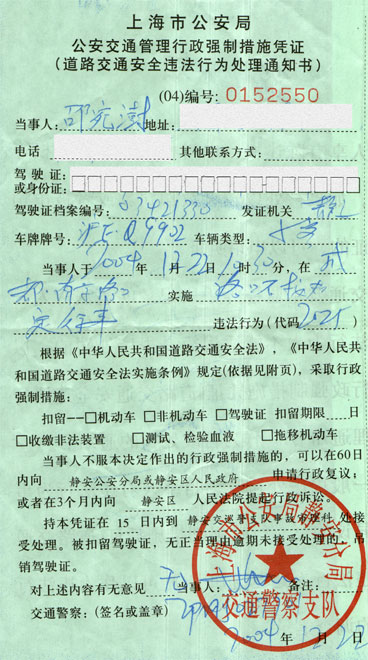 上海市公安局
公安交通管理行政强制措施凭证
(道路交通安全违法行为处理通知书)
(04)编号: 0152550
当事人: 地址:
电话 其他联系方式:
驾驶证:
或身份证:
驾驶证档案编号: 发证机关
车牌牌号: Q9902 车辆类型:
当事人于 2004 年 12.22 日 时 分, 在
实施
违法行为(代码 2025 )
根据《中华人民共和国道路交通安全法》,《中华人民共
和国道路交通安全法实施条例》规定(依据见附页), 采取行政
强制措施:
扣留——□机动车 □非机动车 □驾驶证 扣留期限 日
□收缴非法装置 □测试、检验血液 □拖移机动车
当事人不服本决定作出的行政强制措施的, 可以在60日
内向 静安公安分局或静安区人民政府 申请行政复议;
或者在3个月内向 静安区 人民法院提起行政诉讼。
持本凭证在 15 日内到 静安交巡警支队事故审理科 处接
受处理。被扣留驾驶证, 无正当理由逾期未接受处理的, 吊
销驾驶证。
对上述内容有无意见 无 当事人 备注:
交通警察:(签名或盖章)
2004 年 12 月 22
交通警察支队